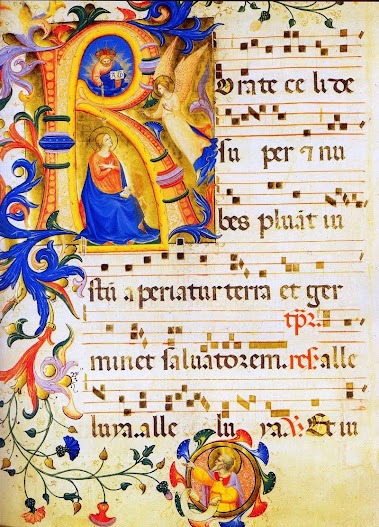 Rorate ce li de
su per ⁊ nu
bes pluāt iu
stū aperiatur terra et ger
tp̄r.
minet saluatorem. res. alle
luya. alle lu ya. V. Et iu